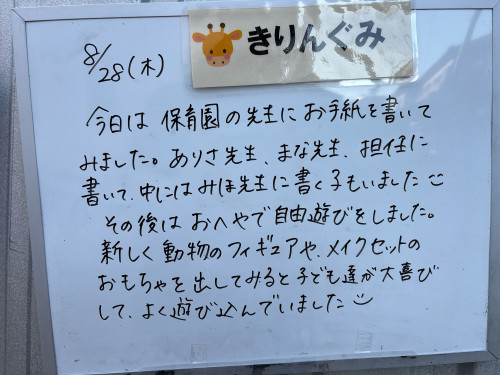 きりんぐみ
8/28(木)
今日は 保育園の先生に お手紙を書いて
みました。ありさ先生、まな先生、担任に
書いて、中にはみほ先生に書く子もいました
その後は おへやで自由遊びをしました。
新しく動物のフィギュアや、メイクセットの
おもちゃを出してみると子ども達が大喜び
して、よく遊び込んでいました